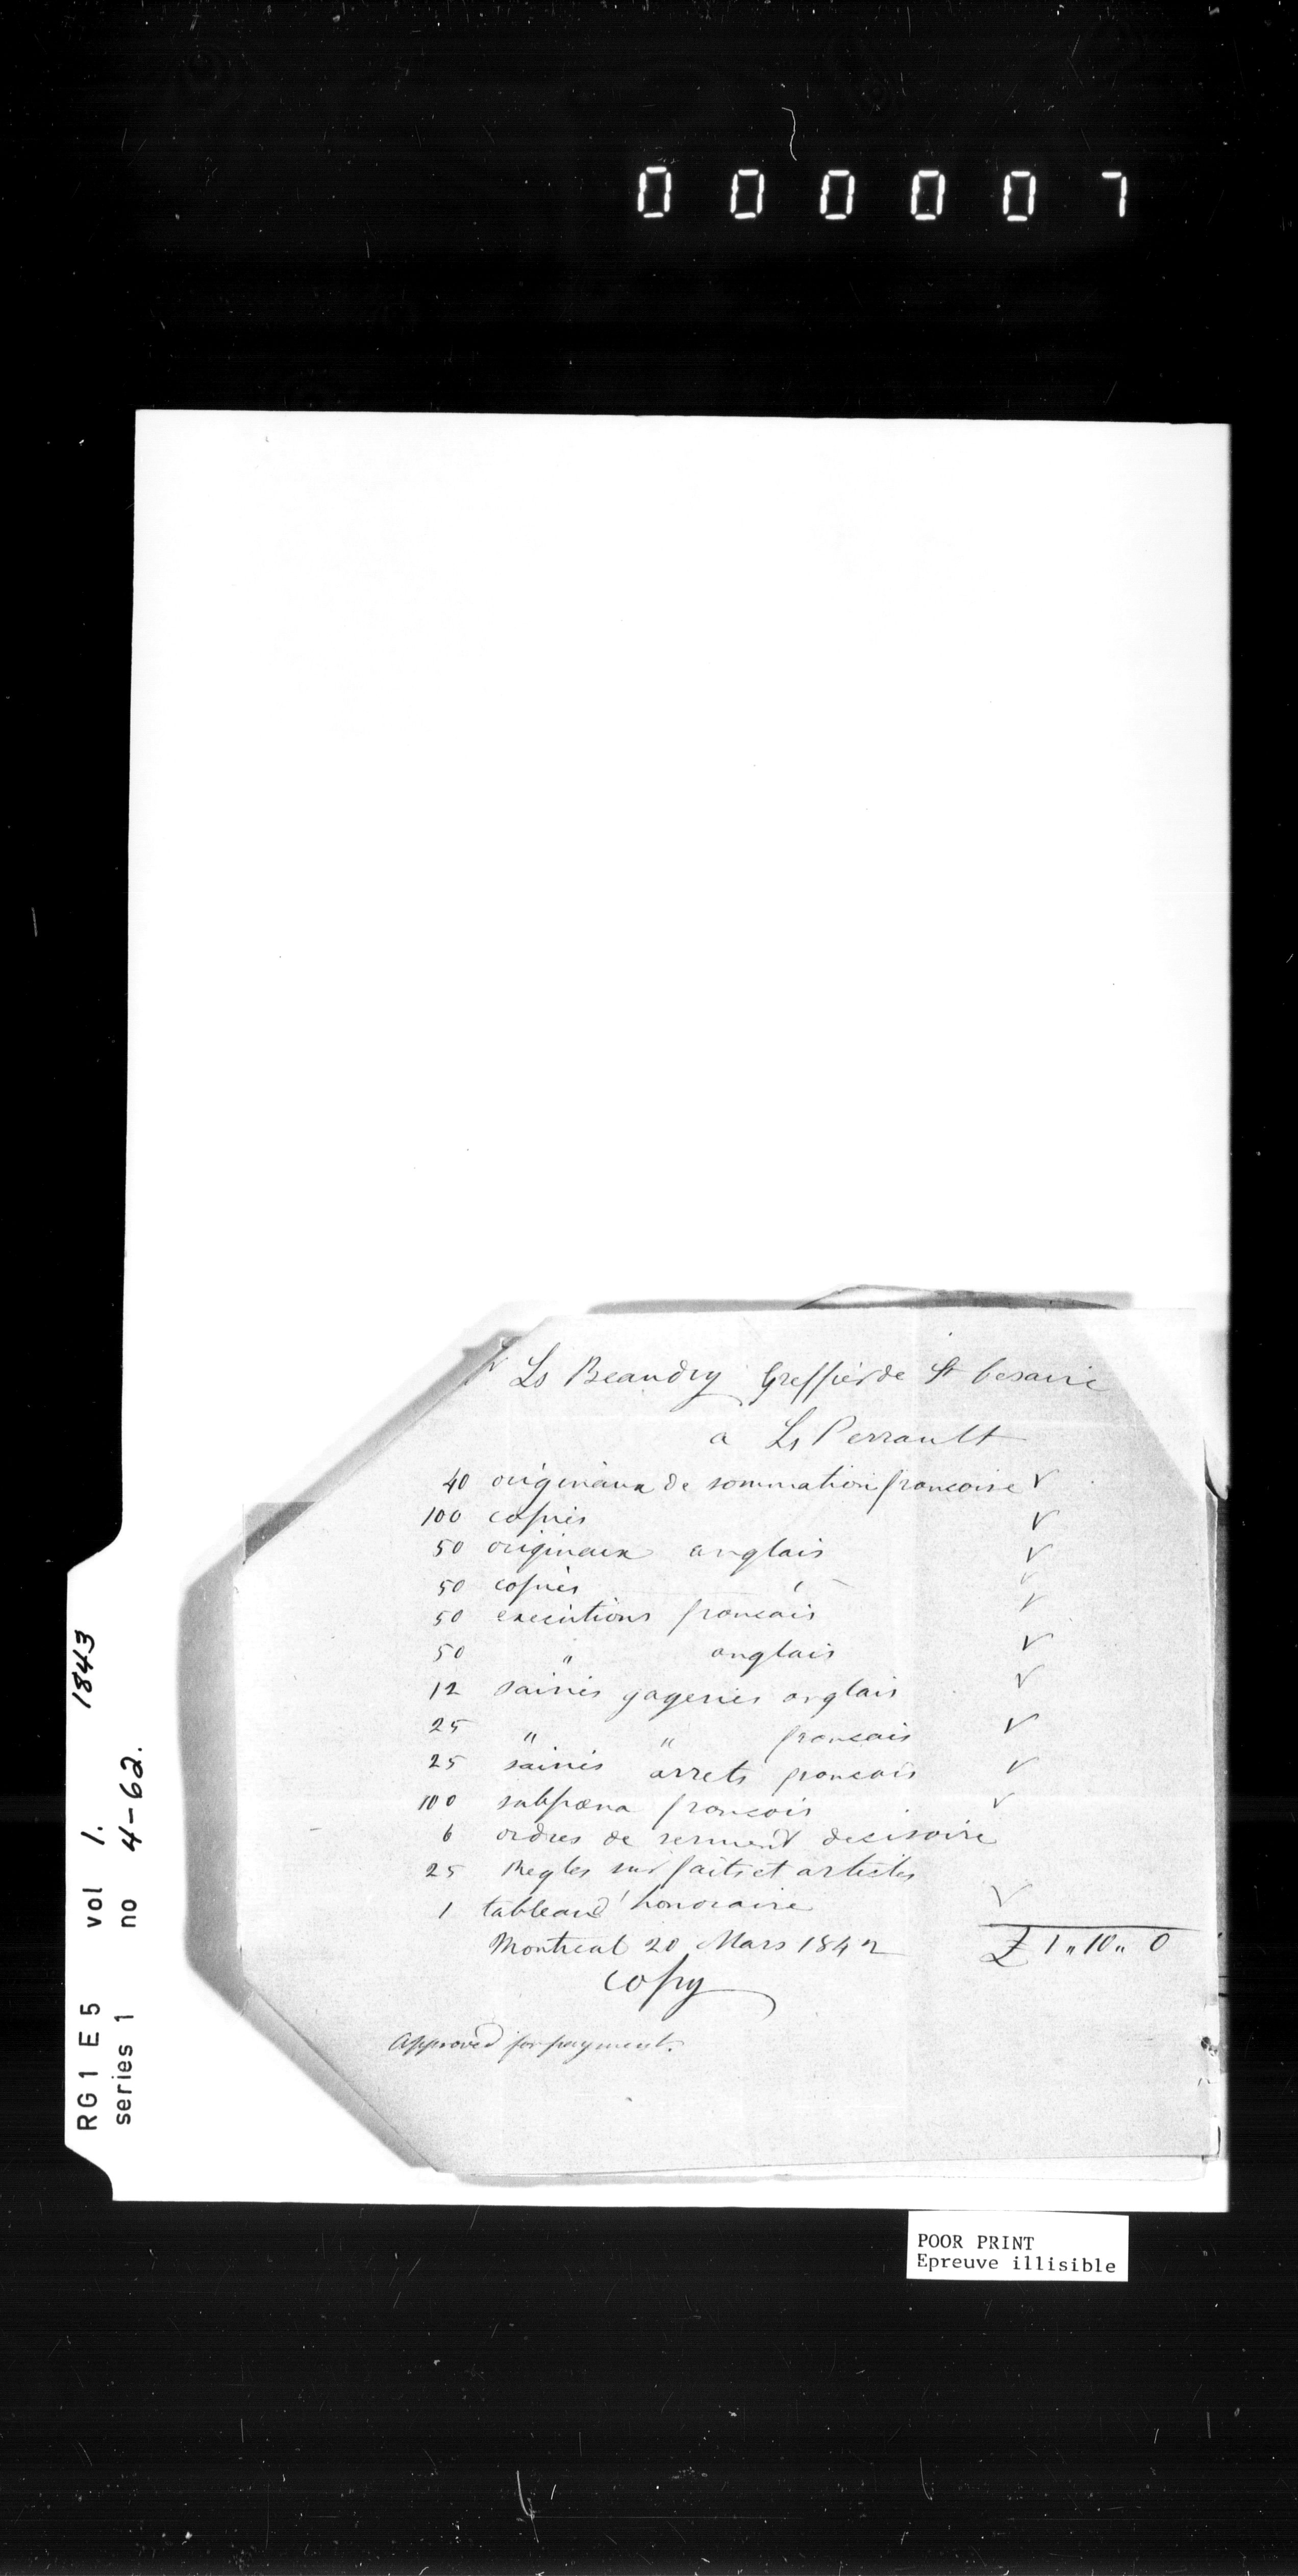 000007
Ls Beaudry Greffier de St Cesaire
a Ls Perrault
40 originaux de sommation francoise √
100 copies √
50 originaux anglais √
50 copies √
50 executions francais √
50 " anglais √
12 saisies gageries anglais √
25 " " francais √
25 saisies arrets francais √
100 subpœna francois √
6 ordres de serment decisoire
25 Regles sur faits et articles
1 tableau d'honoraire √
Montreal 20 Mars 1842 £ 1 " 10 " 0
copy
Approved for payment.
RG1 E5 vol 1. 1843
series 1 no 4-62.
POOR PRINT
Epreuve illisible